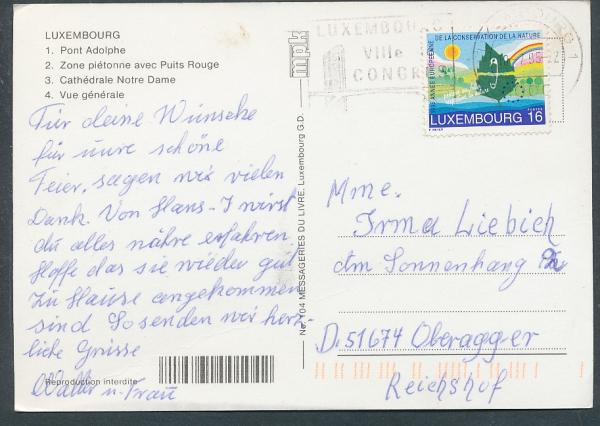 LUXEMBOURG
1. Pont Adolphe
2. Zone piétonne avec Puits Rouge
3. Cathédrale Notre Dame
4. Vue générale
Für deine Wünsche
für unre schöne
Feier, sagen wir vielen
Dank. Von Hans-J wirst
du alles nähre erfahren.
Hoffe das sie wieder gut
zu Hause angekommen
sind So senden wir herz-
liche Grüsse
Walter u. Frau
Reproduction interdite
mpk
No. 104 MESSAGERIES DU LIVRE, Luxembourg G.D.
LUXEMBOURG
Ville
CONGR
ANNÉE EUROPÉENNE DE LA CONSERVATION DE LA NATURE
LUXEMBOURG 16
Mme.
Irma Liebich
Am Sonnenhang
D.51674 Oberagger
Reichshof